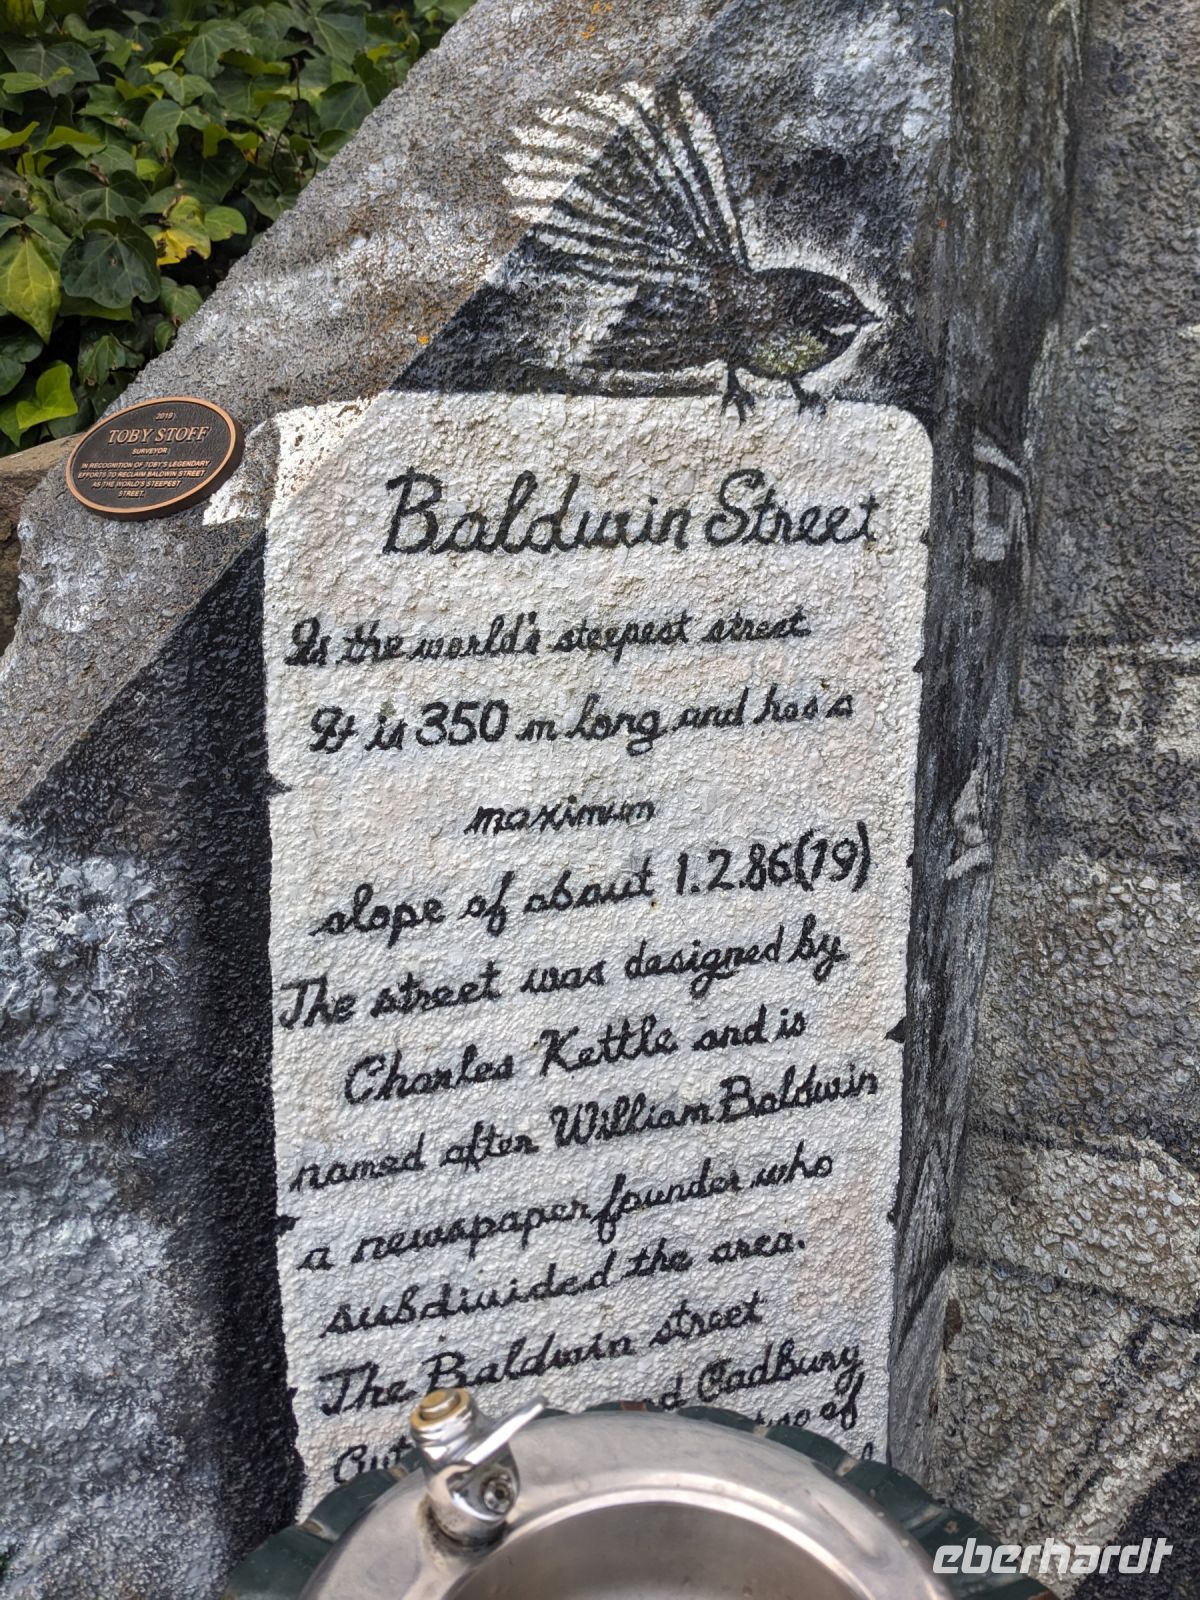 2019
TOBY STOFF
SURVEYOR
IN RECOGNITION OF TOBY'S LEGENDARY
EFFORTS TO RECLAIM BALDWIN STREET
AS THE WORLD'S STEEPEST
STREET.
Baldwin Street
Is the world's steepest street
It is 350 m long and has a
maximum
slope of about 1.2.86(19)
The street was designed by
Charles Kettle and is
named after William Baldwin
a newspaper founder who
subdivided the area.
The Baldwin street
Cadbury
of
eberhardt